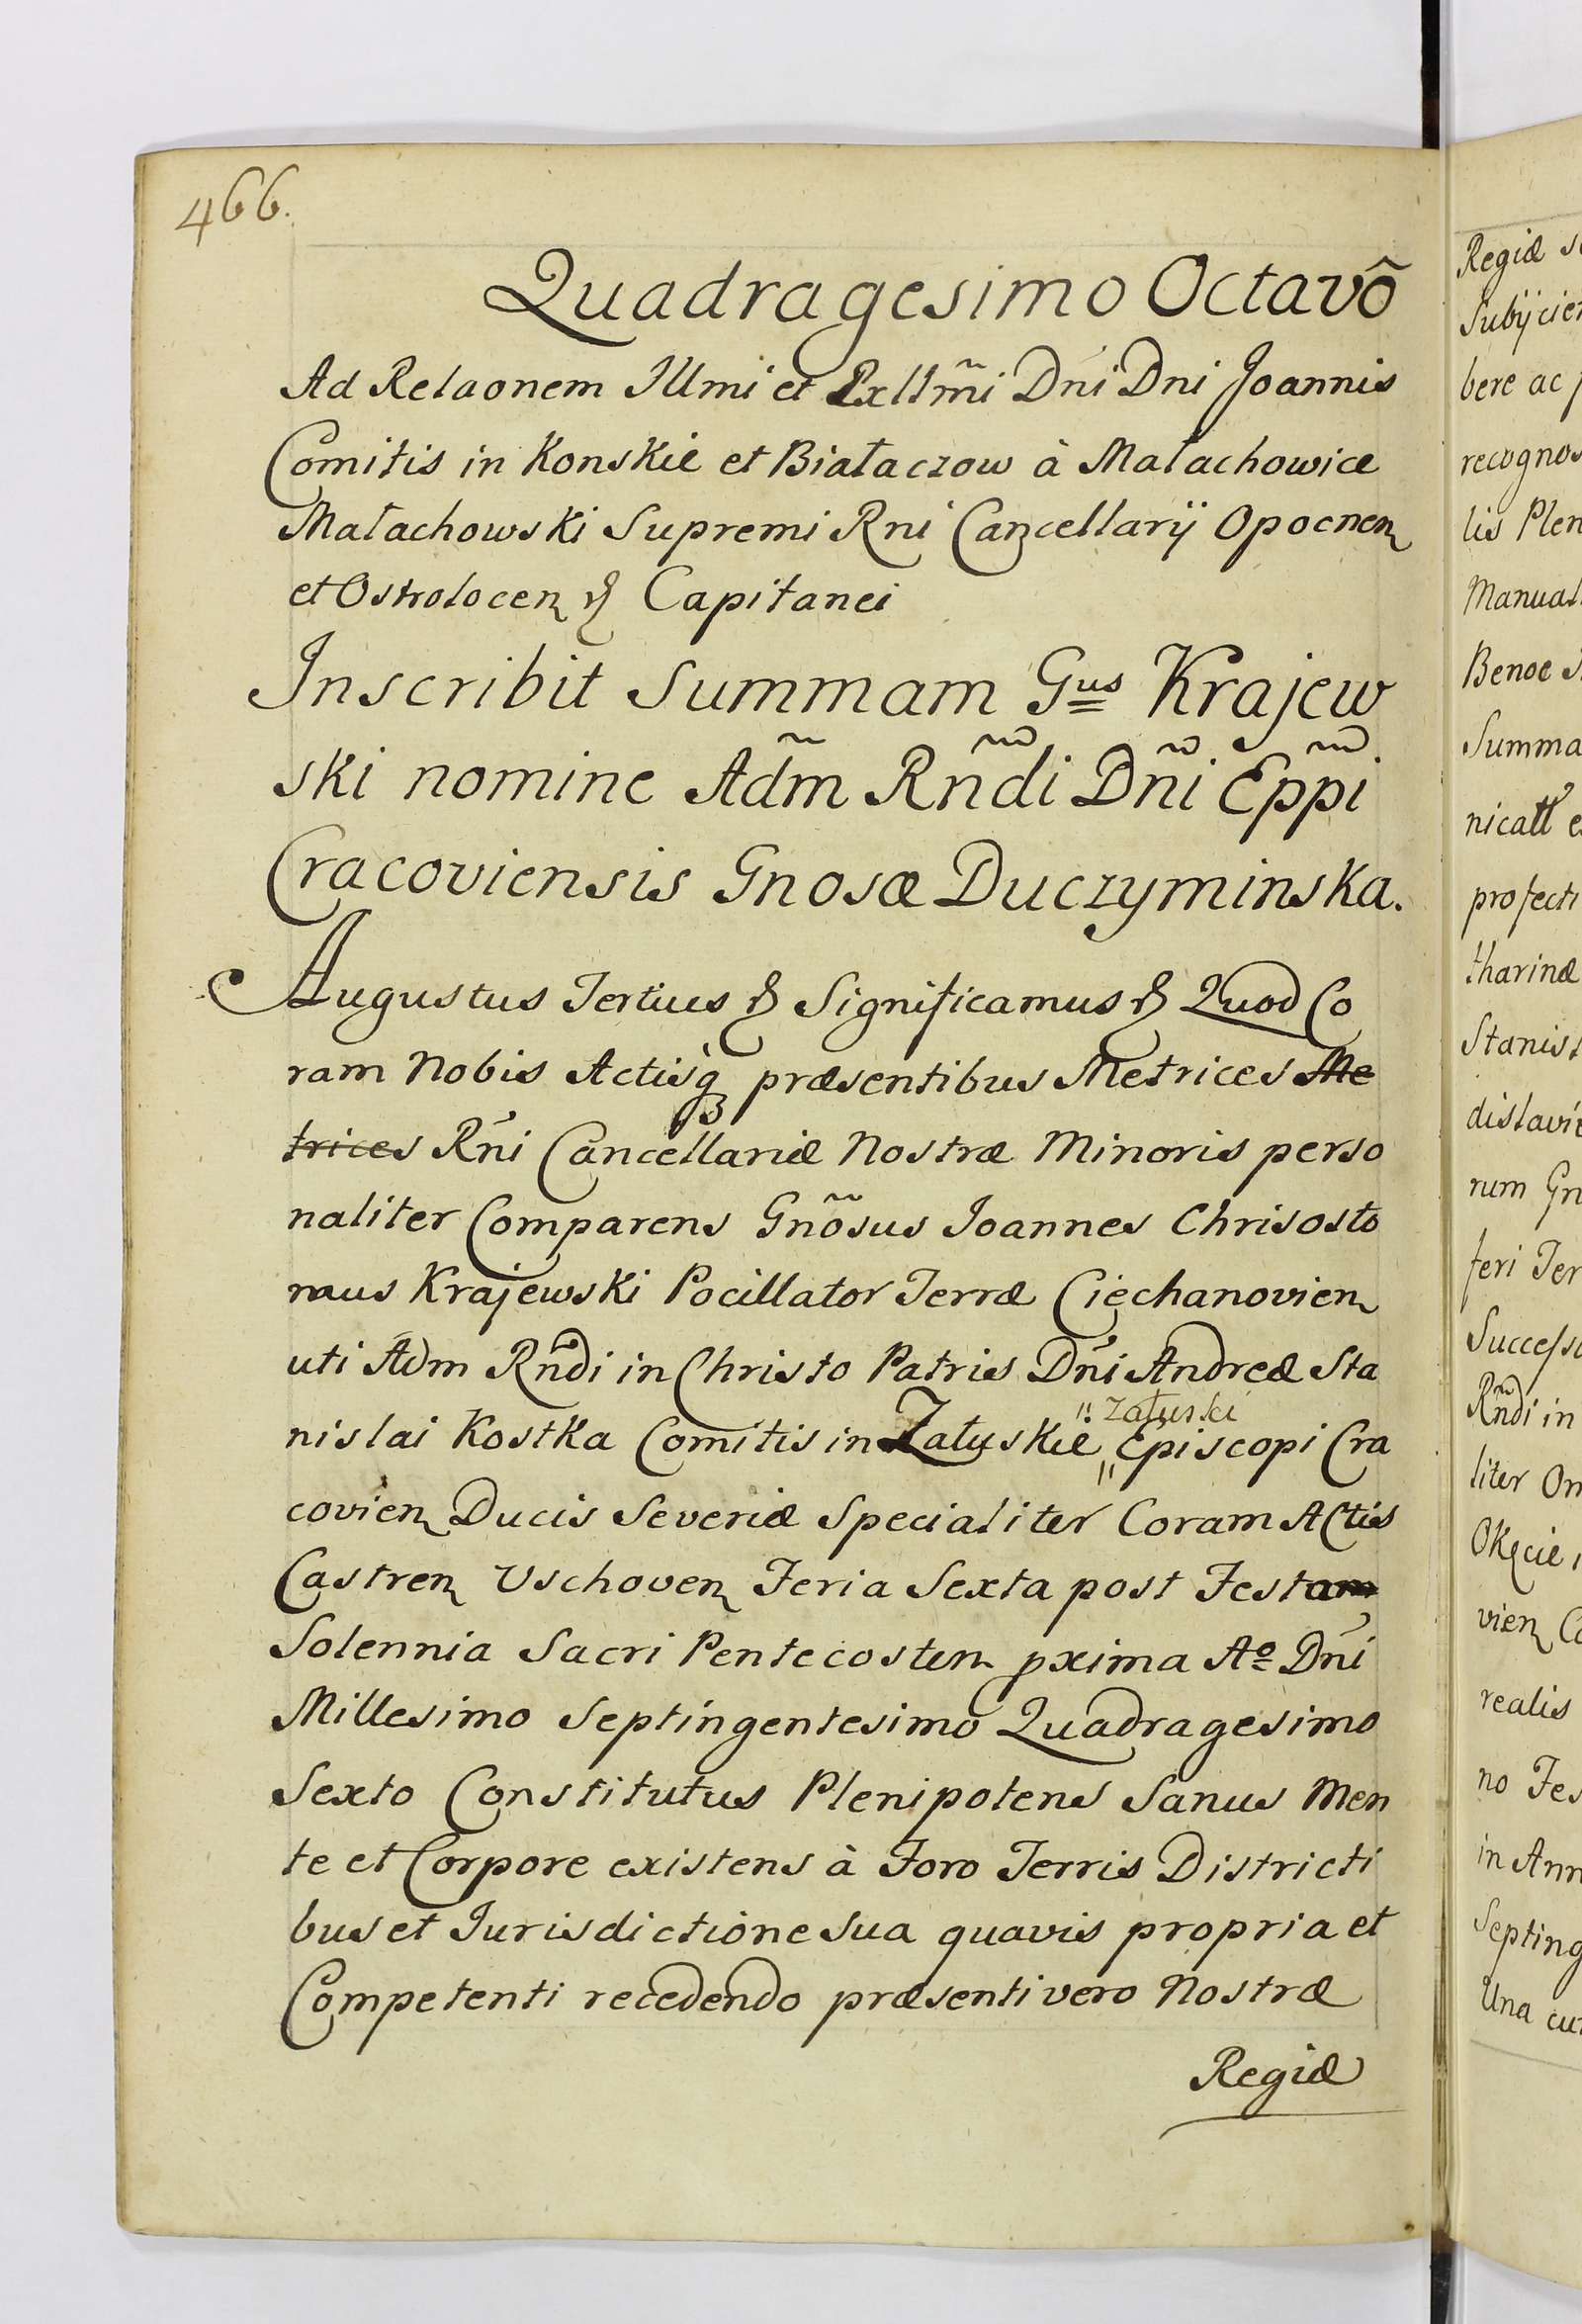 466.
Quadragesimo Octavõ
Ad Relaonem Illmi et Exllm̃i Dńi Dni Joannis
Comitis in Konskie et Białaczow à Małachowice
Małachowski Supremi Rni Cancellarij Opocnen
et Ostrołocen & Capitanei
Inscribit Summam Gus Krajew
ski nomine Adm̃ Rñdi Dñi Eppĩ
Cracoviensis Gnosæ Duczyminska.
Augustus Tertius & Significamus & Quod Co
ram Nobis Actisq præsentibus Metrices Me
trices Rńi Cancellariæ Nostræ Minoris perso
naliter Comparens Gnõsus Joannes Chrisosto
mus Krajewski Pocillator Terræ Ciechanovien
uti Adm Rñdi in Christo Patris Dńi Andreæ Sta
nislai Kostka Comitis in Załuskie " Załuski " Episcopi Cra
covien Ducis Severiæ Specialiter Coram Actis
Castren Uschoven Feria Sexta post Festam
Solennia Sacri Pentecosten pxima Ao Dńi
Millesimo Septingentesimo Quadragesimo
Sexto Constitutus Plenipotens Sanus Men
te et Corpore existens à Foro Terris Districti
bus et Jurisdictione sua quavis propria et
Competenti recedendo præsenti vero Nostræ
Regiæ
Regiæ
Subijcie
bere ac
recognos
lis Plen
Manual
Benoe
Summa
nicatt
profecti
tharinæ
Stanisl
dislavi
rum Gn
feri Ter
Successo
Rñdi in
liter Om
Okęcie
vien
realis
no Fes
in Ann
Septing
Una cu